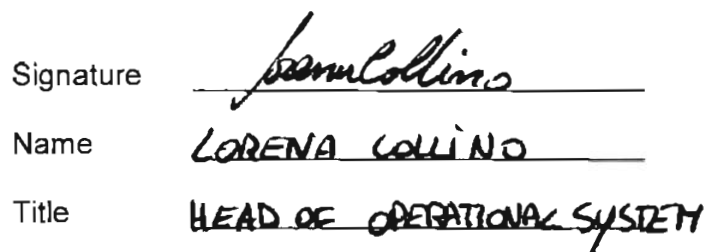 Signature Lorena Collino
Name LORENA COLLINO
Title HEAD OF OPERATIONAL SYSTEM